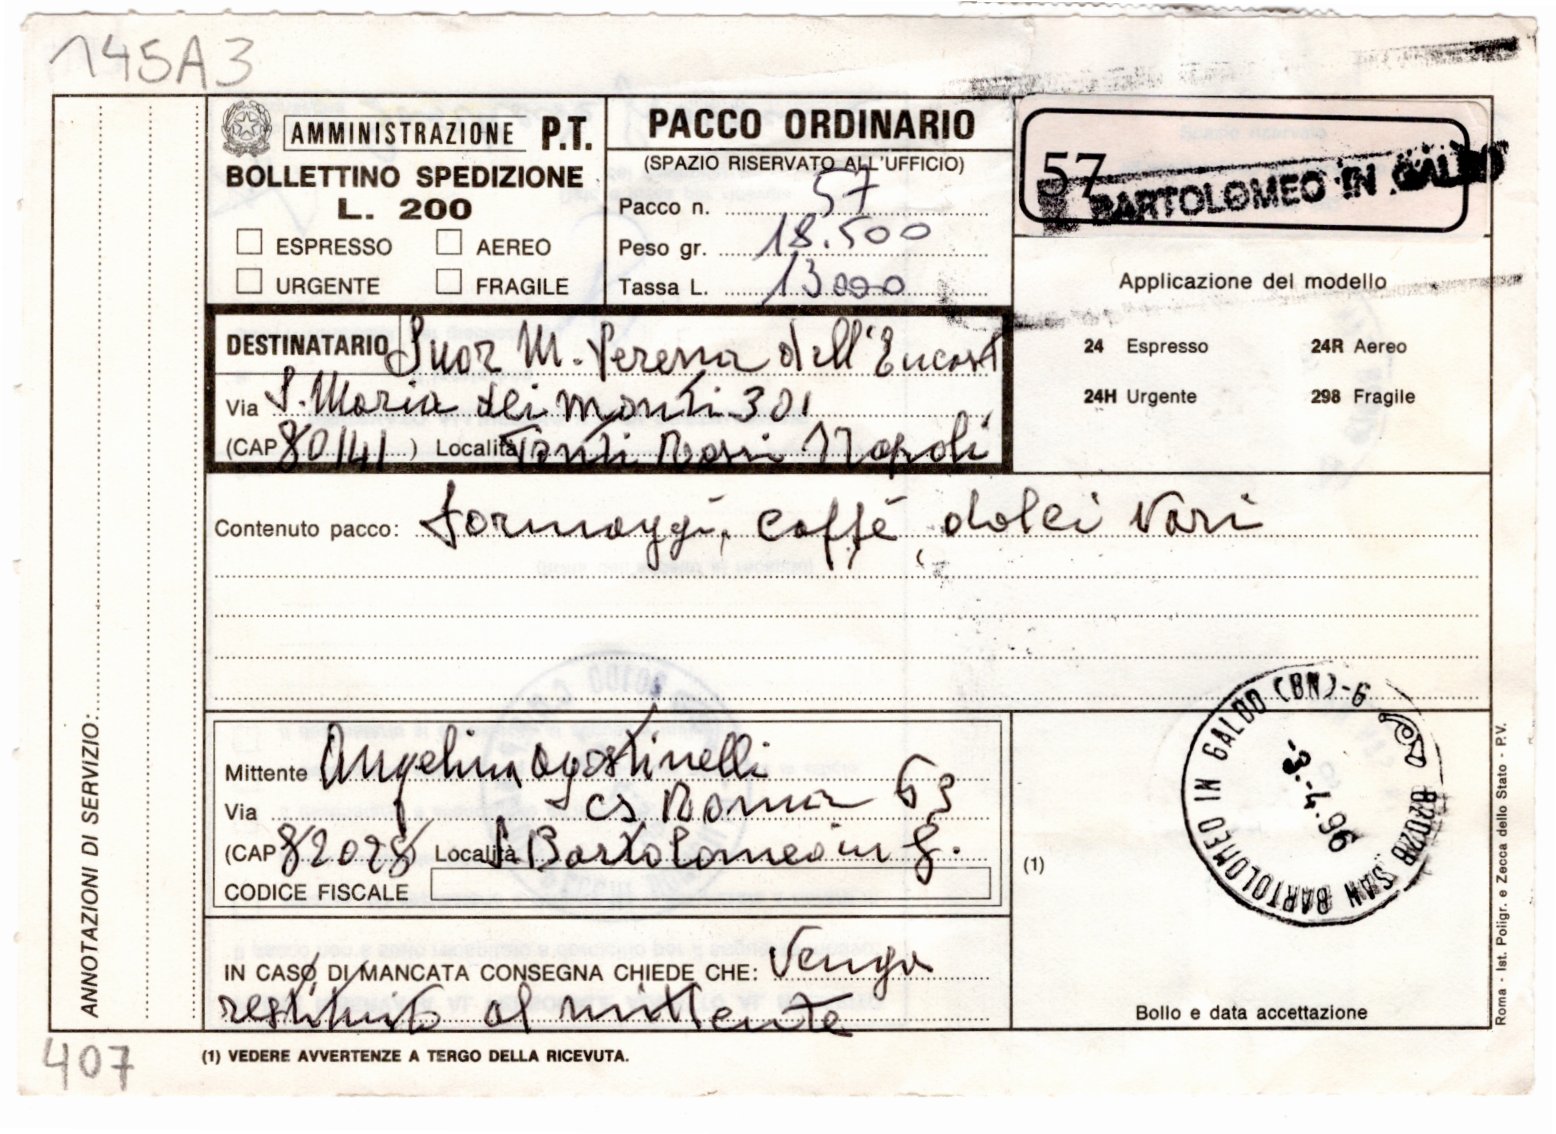 145A3
AMMINISTRAZIONE P.T.
BOLLETTINO SPEDIZIONE
L. 200
ESPRESSO AEREO
URGENTE FRAGILE
PACCO ORDINARIO
(SPAZIO RISERVATO ALL'UFFICIO)
Pacco n. 57
Peso gr. 18.500
Tassa L. 13000
57
BARTOLOMEO IN GALDO
Applicazione del modello
24 Espresso 24R Aereo
24H Urgente 298 Fragile
DESTINATARIO Suor M. dell'
Via S. Maria dei Monti 301
(CAP 80141) Località Ponti Rossi Napoli
Contenuto pacco: formaggi, caffè, dolci vari
Mittente Angelina Agostinelli
Via cs Roma 63
(CAP 82028) Località S Bartolomeo in G.
CODICE FISCALE
IN CASO DI MANCATA CONSEGNA CHIEDE CHE: Venga
restituito al mittente
(1)
82028 SAN BARTOLOMEO IN GALDO (BN)-6
-3.-4.96
Bollo e data accettazione
ANNOTAZIONI DI SERVIZIO:
Roma - Ist. Poligr. e Zecca dello Stato - P.V.
407
(1) VEDERE AVVERTENZE A TERGO DELLA RICEVUTA.